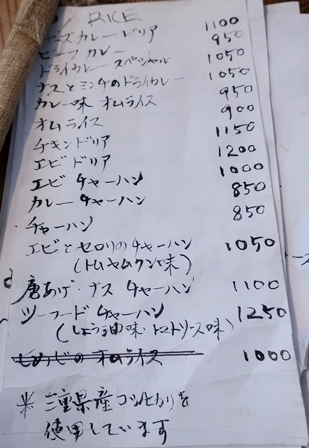 RICE
ナスカレードリア 1100
ビーフカレー 950
ドライカレー スペシャル 1050
ナスとミンチのドライカレー 1050
カレー味 オムライス 950
オムライス 900
チキンドリア 1150
エビドリア 1200
エビ チャーハン 1000
カレー チャーハン 850
チャーハン 850
エビとセロリのチャーハン 1050
(トムヤムクン味)
唐あげ・ナス チャーハン 1100
シーフード チャーハン 1250
(しょう油味・トマトソース味)
オムライス 1000
※ 三重県産コシヒカリを
使用しています